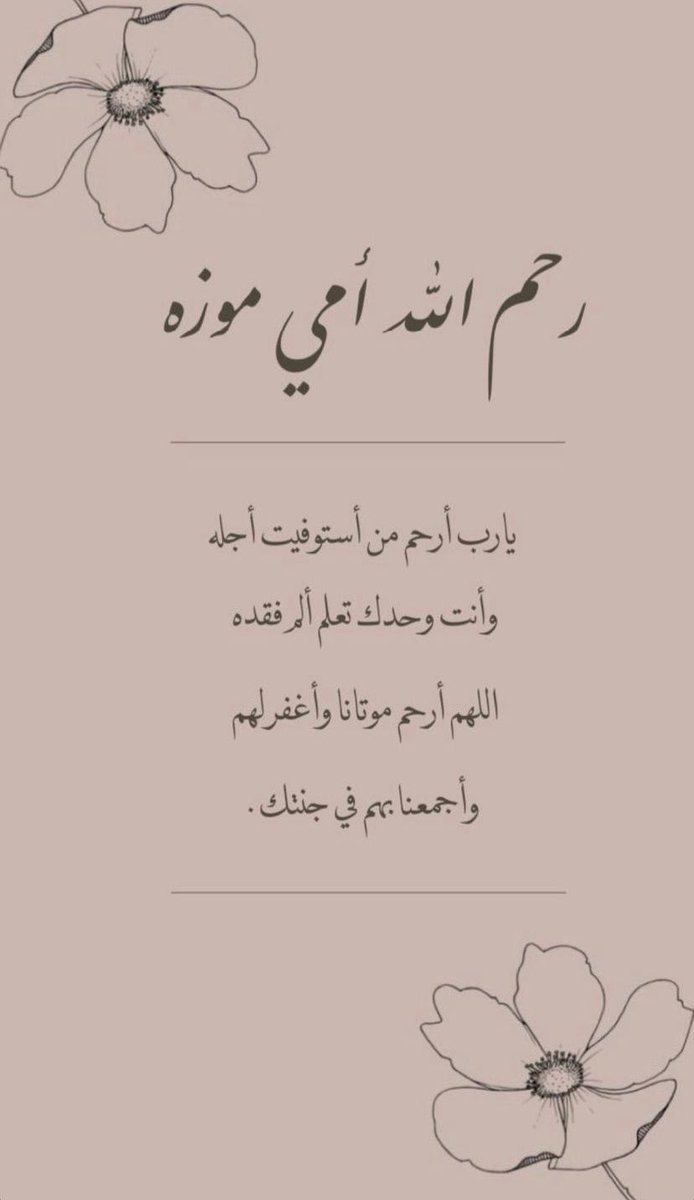 رحم الله أمي موزه
يارب أرحم من أستوفيت أجله
وأنت وحدك تعلم ألم فقده
اللهم أرحم موتانا وأغفرلهم
وأجمعنا بهم في جنتك .